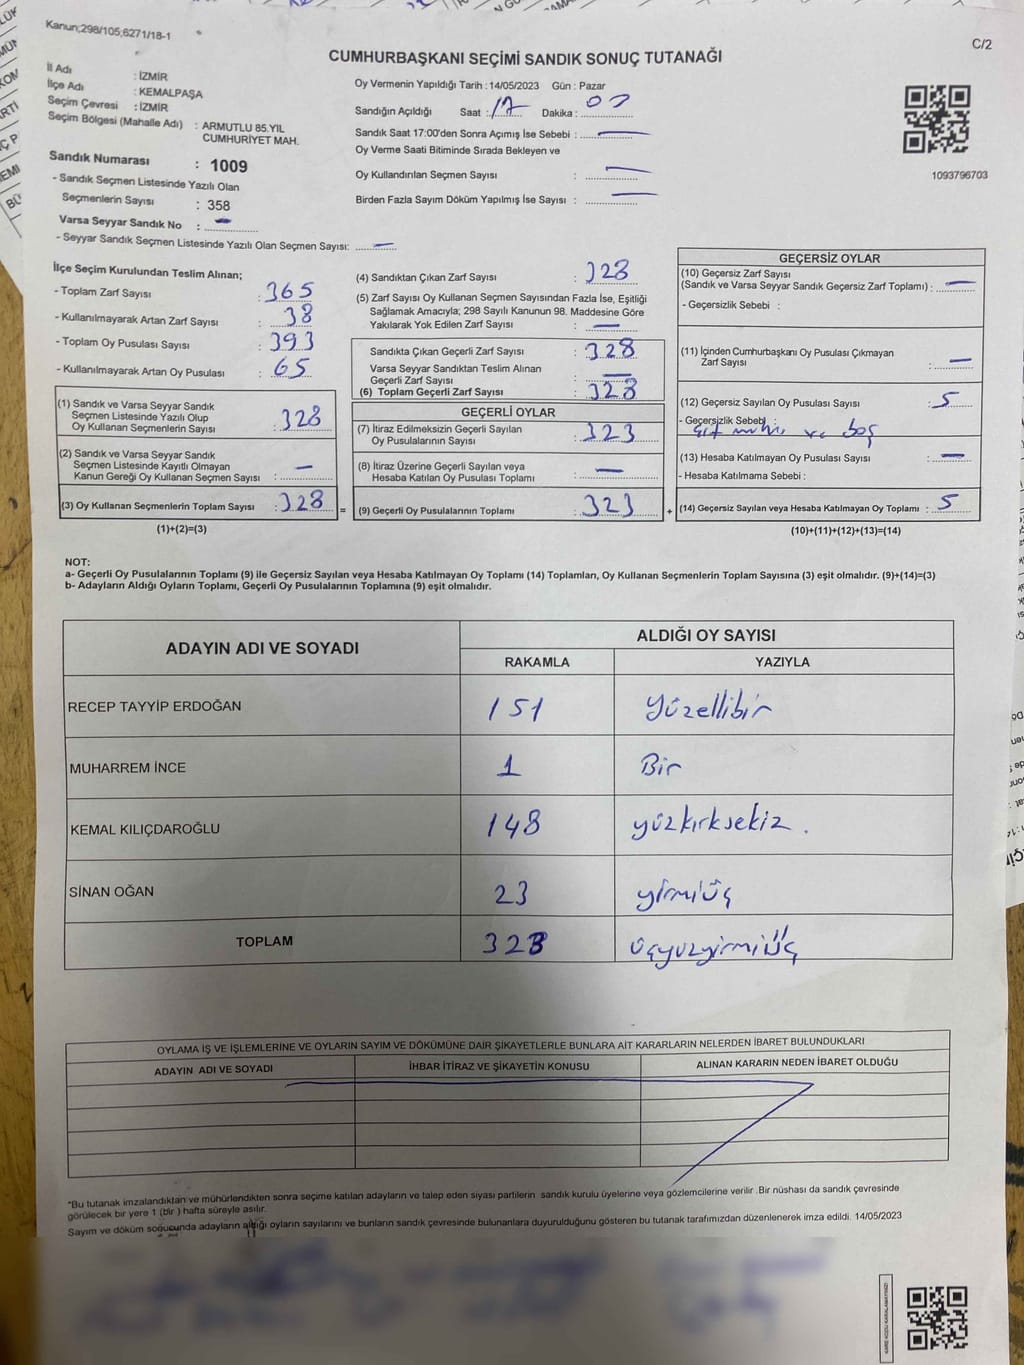 Kanun;298/105;6271/18-1
C/2
CUMHURBAŞKANI SEÇİMİ SANDIK SONUÇ TUTANAĞI
İl Adı : İZMİR
İlçe Adı : KEMALPAŞA
Seçim Çevresi : İZMİR
Seçim Bölgesi (Mahalle Adı) : ARMUTLU 85.YIL
CUMHURİYET MAH.
Sandık Numarası : 1009
- Sandık Seçmen Listesinde Yazılı Olan
Seçmenlerin Sayısı : 358
Varsa Seyyar Sandık No : —
- Seyyar Sandık Seçmen Listesinde Yazılı Olan Seçmen Sayısı: —
Oy Vermenin Yapıldığı Tarih : 14/05/2023 Gün : Pazar
Sandığın Açıldığı Saat : 17 Dakika :
Sandık Saat 17:00'den Sonra Açımış İse Sebebi : —
Oy Verme Saati Bitiminde Sırada Bekleyen ve
Oy Kullandırılan Seçmen Sayısı : —
Birden Fazla Sayım Döküm Yapılmış İse Sayısı : —
1093796703
İlçe Seçim Kurulundan Teslim Alınan;
- Toplam Zarf Sayısı : 365
- Kullanılmayarak Artan Zarf Sayısı : 38
- Toplam Oy Pusulası Sayısı : 393
- Kullanılmayarak Artan Oy Pusulası : 65
(1) Sandık ve Varsa Seyyar Sandık
Seçmen Listesinde Yazılı Olup
Oy Kullanan Seçmenlerin Sayısı : 328
(2) Sandık ve Varsa Seyyar Sandık
Seçmen Listesinde Kayıtlı Olmayan
Kanun Gereği Oy Kullanan Seçmen Sayısı : —
(3) Oy Kullanan Seçmenlerin Toplam Sayısı : 328 =
(1)+(2)=(3)
(4) Sandıktan Çıkan Zarf Sayısı : 328
(5) Zarf Sayısı Oy Kullanan Seçmen Sayısından Fazla İse, Eşitliği
Sağlamak Amacıyla; 298 Sayılı Kanunun 98. Maddesine Göre
Yakılarak Yok Edilen Zarf Sayısı : —
Sandıkta Çıkan Geçerli Zarf Sayısı : 328
Varsa Seyyar Sandıktan Teslim Alınan
Geçerli Zarf Sayısı : —
(6) Toplam Geçerli Zarf Sayısı : 328
GEÇERLİ OYLAR
(7) İtiraz Edilmeksizin Geçerli Sayılan
Oy Pusulalarının Sayısı : 323
(8) İtiraz Üzerine Geçerli Sayılan veya
Hesaba Katılan Oy Pusulası Toplamı : —
(9) Geçerli Oy Pusulalarının Toplamı : 323 +
GEÇERSİZ OYLAR
(10) Geçersiz Zarf Sayısı
(Sandık ve Varsa Seyyar Sandık Geçersiz Zarf Toplamı) : —
- Geçersizlik Sebebi :
(11) İçinden Cumhurbaşkanı Oy Pusulası Çıkmayan
Zarf Sayısı : —
(12) Geçersiz Sayılan Oy Pusulası Sayısı : 5
- Geçersizlik Sebebi
ve boş
(13) Hesaba Katılmayan Oy Pusulası Sayısı : —
- Hesaba Katılmama Sebebi :
(14) Geçersiz Sayılan veya Hesaba Katılmayan Oy Toplamı : 5
(10)+(11)+(12)+(13)=(14)
NOT:
a- Geçerli Oy Pusulalarının Toplamı (9) ile Geçersiz Sayılan veya Hesaba Katılmayan Oy Toplamı (14) Toplamları, Oy Kullanan Seçmenlerin Toplam Sayısına (3) eşit olmalıdır. (9)+(14)=(3)
b- Adayların Aldığı Oyların Toplamı, Geçerli Oy Pusulalarının Toplamına (9) eşit olmalıdır.
ADAYIN ADI VE SOYADI ALDIĞI OY SAYISI
RAKAMLA YAZIYLA
RECEP TAYYİP ERDOĞAN 151 Yüzellibir
MUHARREM İNCE 1 Bir
KEMAL KILIÇDAROĞLU 148 yüzkırksekiz.
SİNAN OĞAN 23 yirmiüç
TOPLAM 323 üçyüzyirmiüç
OYLAMA İŞ VE İŞLEMLERİNE VE OYLARIN SAYIM VE DÖKÜMÜNE DAİR ŞİKAYETLERLE BUNLARA AİT KARARLARIN NELERDEN İBARET BULUNDUKLARI
ADAYIN ADI VE SOYADI İHBAR İTİRAZ VE ŞİKAYETİN KONUSU ALINAN KARARIN NEDEN İBARET OLDUĞU
*Bu tutanak imzalandıktan ve mühürlendikten sonra seçime katılan adayların ve talep eden siyasi partilerin sandık kurulu üyelerine veya gözlemcilerine verilir .Bir nüshası da sandık çevresinde
görülecek bir yere 1 (bir ) hafta süreyle asılır.
Sayım ve döküm sonucunda adayların aldığı oyların sayılarını ve bunların sandık çevresinde bulunanlara duyurulduğunu gösteren bu tutanak tarafımızdan düzenlenerek imza edildi. 14/05/2023